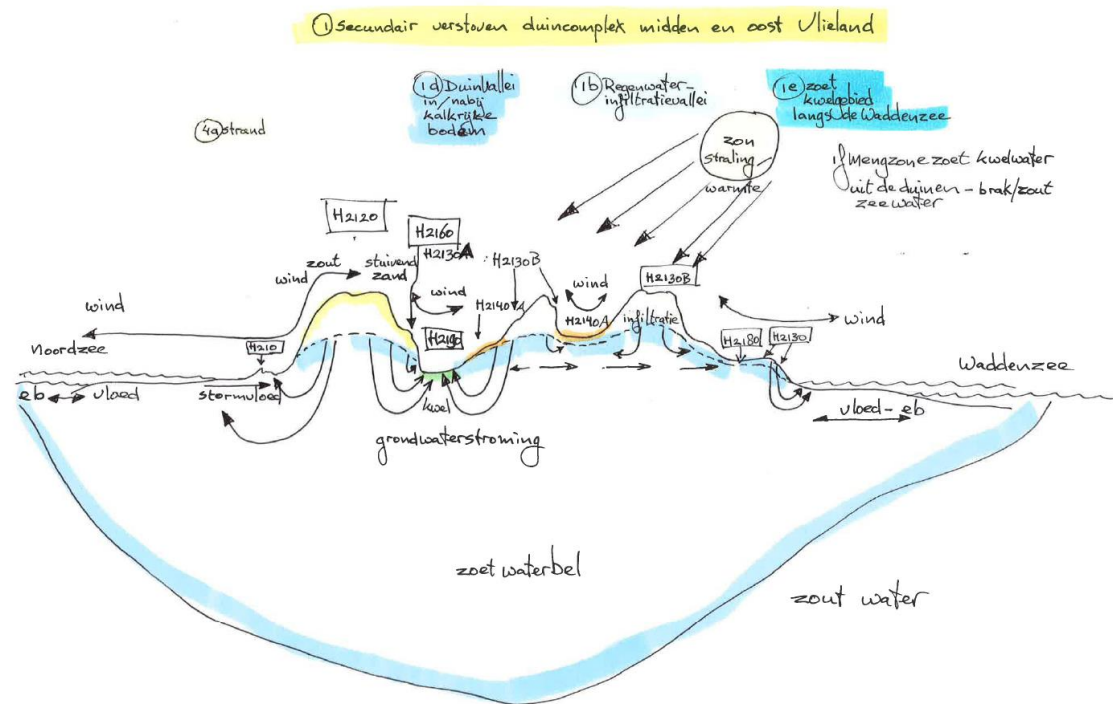 ① Secundair verstoven duincomplex midden en oost Vlieland
1d Duinvallei
in/nabij
kalkrijke
bodem
1b Regenwater-
infiltratievallei
1e zoet
kwelgebied
langs de Waddenzee
4a strand
zon
straling
warmte
1f Mengzone zoet kwelwater
uit de duinen - brak/zout
zeewater
H2120
H2160
H2130A
zout
wind
stuivend
zand
H2130B
wind
H2130B
wind
H2140A
wind
wind
H2140A
infiltratie
wind
Noordzee
H2110
H2190
H2180
H2130
Waddenzee
eb
vloed
stormvloed
kwel
vloed-eb
grondwaterstroming
zoetwaterbel
zout water